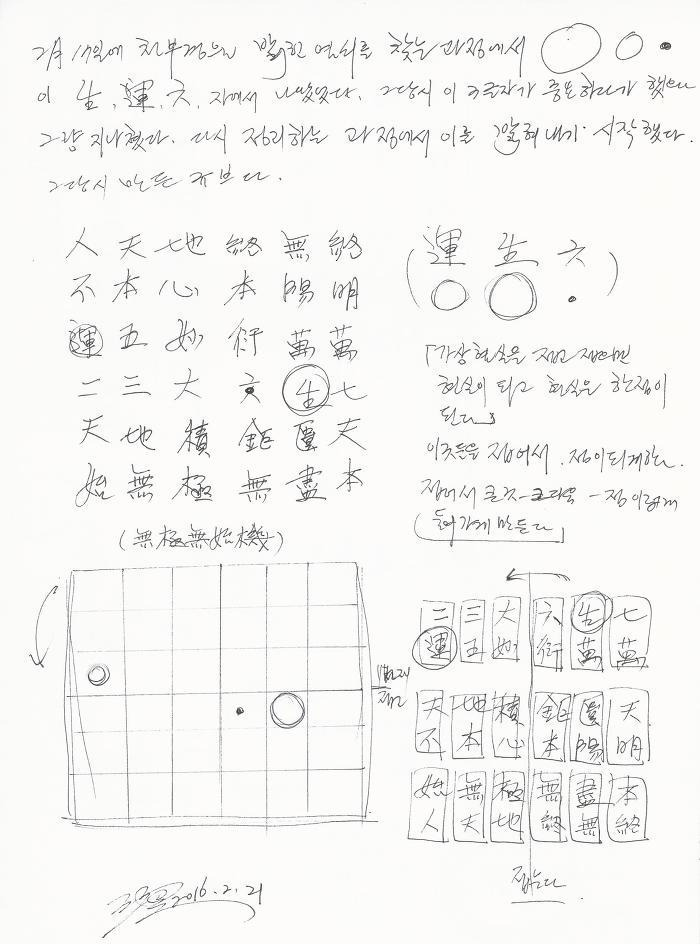 2月 17일에 천부경을 밝힌 열쇠를 찾는 과정에서
이 生, 運, 六, 자에서 나왔었다. 그당시 이 3글자가 중요하다가 했으나
그냥 지나쳤다. 다시 정리하는 과정에서 이를 밝혀내기 시작했다.
그당시 만든 큐브다.
人 天 地 終 無 終
不 本 心 本 陽 明
運 五 妙 衍 萬 萬
二 三 大 六 生 七
天 地 積 鉅 匱 天
始 無 極 無 盡 本
(無極無始機)
(運 生 六)
「가상현실을 접고 접으면
현실이 되고 현실은 한점이
된다」
이것들을 접어서 점이되게하는
접어서
들어가게 만든다」
접고
二 三 大 六 生 七
運 五 妙 衍 萬 萬
天 地 積 鉅 匱 天
不 本 心 本 陽 明
始 無 極 無 盡 本
人 天 地 終 無 終
접는다
2016. 2. 21